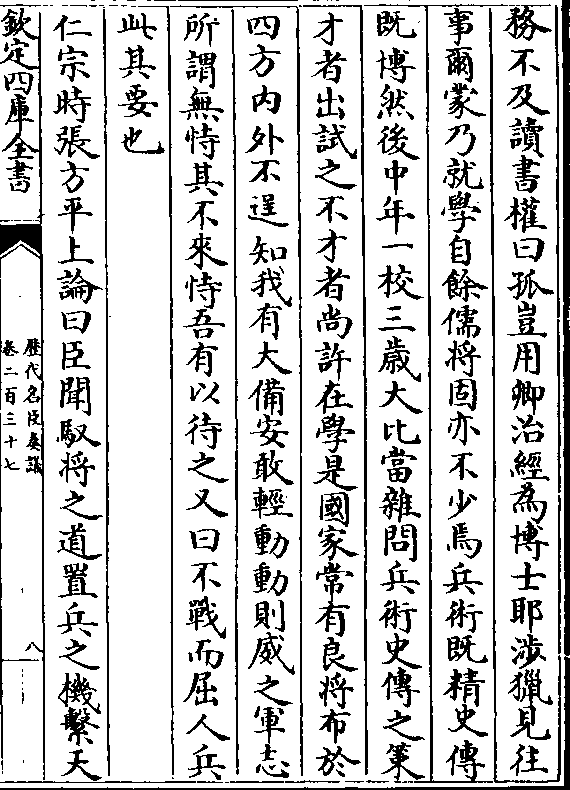 務不及讀書權曰孤豈用卿治經為博士耶涉獵見往
事爾蒙乃就學自餘儒將固亦不少焉兵術既精史傳
既博然後中年一校三歲大比當雜問兵術史傳之策
才者出試之不才者尚許在學是國家常有良將布於
四方内外不逞知我有大備安敢輕動動則威之軍志
所謂無恃其不來恃吾有以待之又曰不戰而屈人兵
此其要也
仁宗時張方平上論曰臣聞馭將之道置兵之機繫天
欽定四庫全書
歷代名臣奏議
卷二百三十七
八